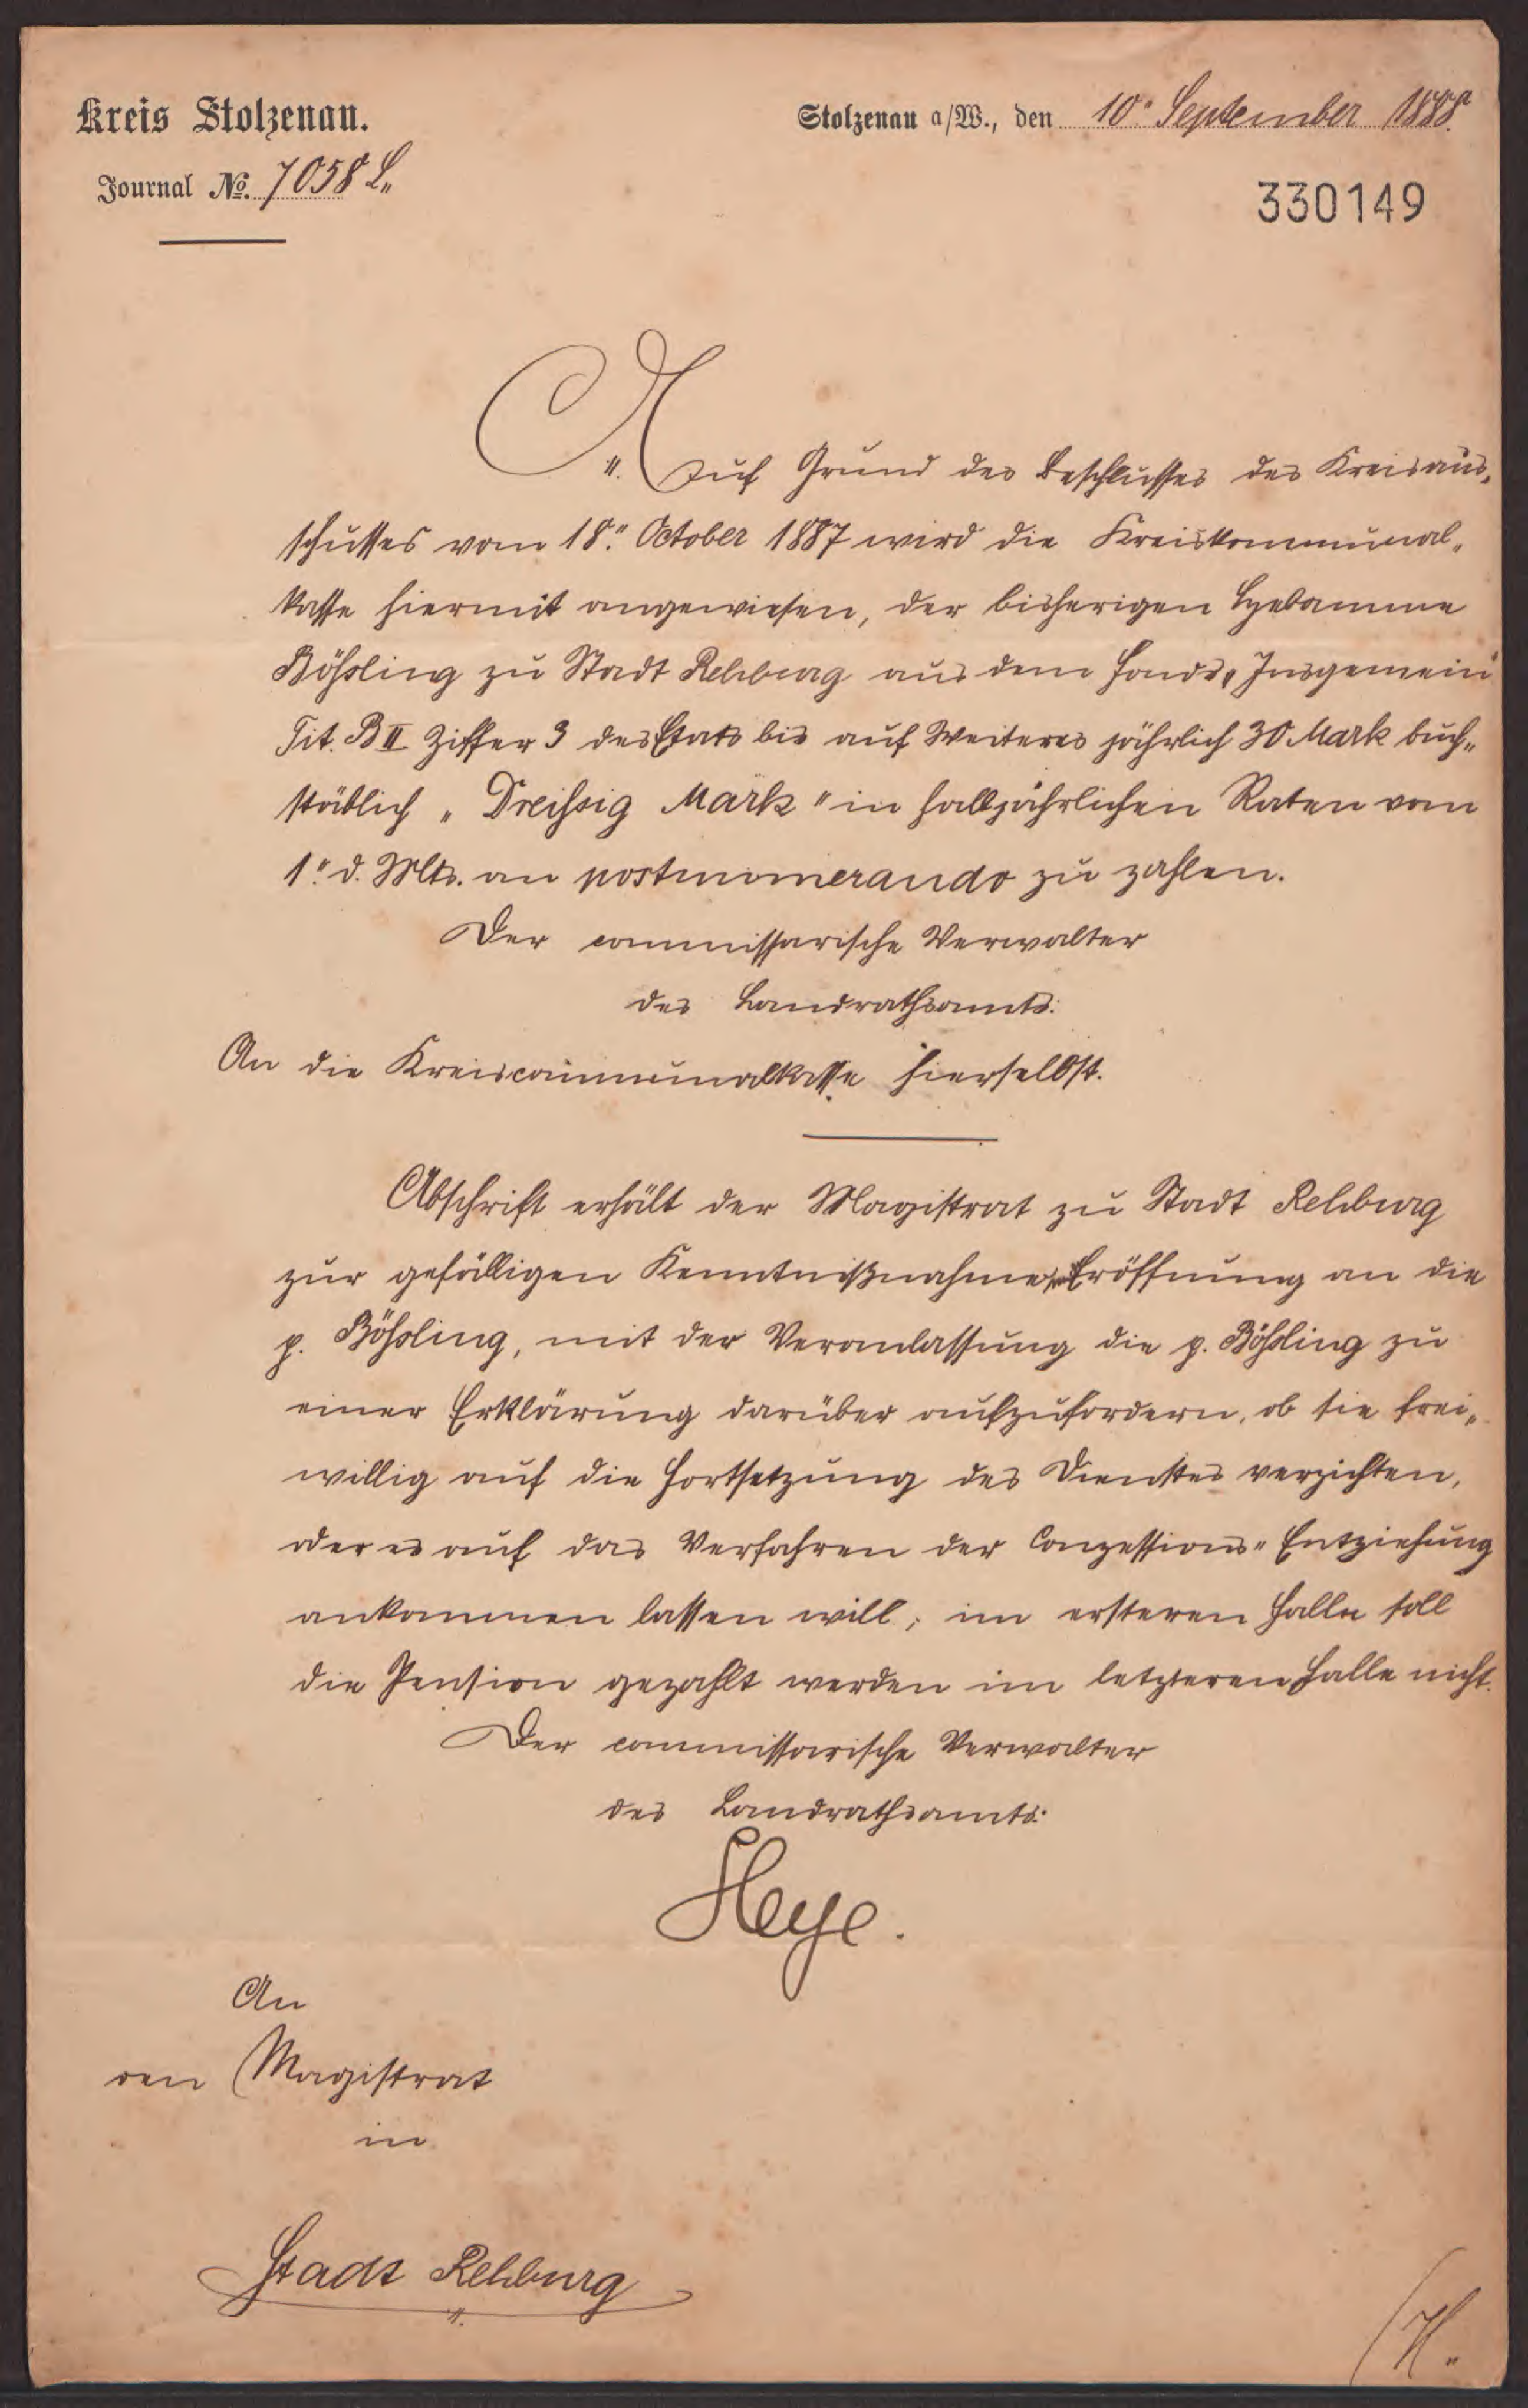 Kreis Stolzenau.
Stolzenau a/W., den 10." September 1888.
Journal No. 7058 L.
330149
Auf Grund des Beschlusses des Kreisaus-
schusses vom 18." October 1887 wird die Kreiskommunal-
kasse hiermit angewiesen, der bisherigen Hebamme
Bößling zu Stadt Rehburg aus dem Fonds „Insgemein"
Tit. B II Ziffer 3 des Etats bis auf Weiteres jährlich 30 Mark buch-
stäblich „Dreißig Mark" in halbjährlichen Raten vom
1." d. Mts. an postnumerando zu zahlen.
Der commissarische Verwalter
des Landrathsamts:
An die Kreiscommunalkasse hierselbst.
Abschrift erhält der Magistrat zu Stadt Rehburg
zur gefälligen Kenntnißnahme, Eröffnung an die
p. Bößling, mit der Veranlassung die p. Bößling zu
einer Erklärung darüber aufzufordern, ob sie frei-
willig auf die Fortsetzung des Dienstes verzichten,
oder es auf das Verfahren der Conzessions-Entziehung
ankommen lassen will; im ersteren Falle soll
die Pension gezahlt werden im letzteren Falle nicht.
Der commissarische Verwalter
des Landrathsamts:
Heye.
An
den Magistrat
in
Stadt Rehburg